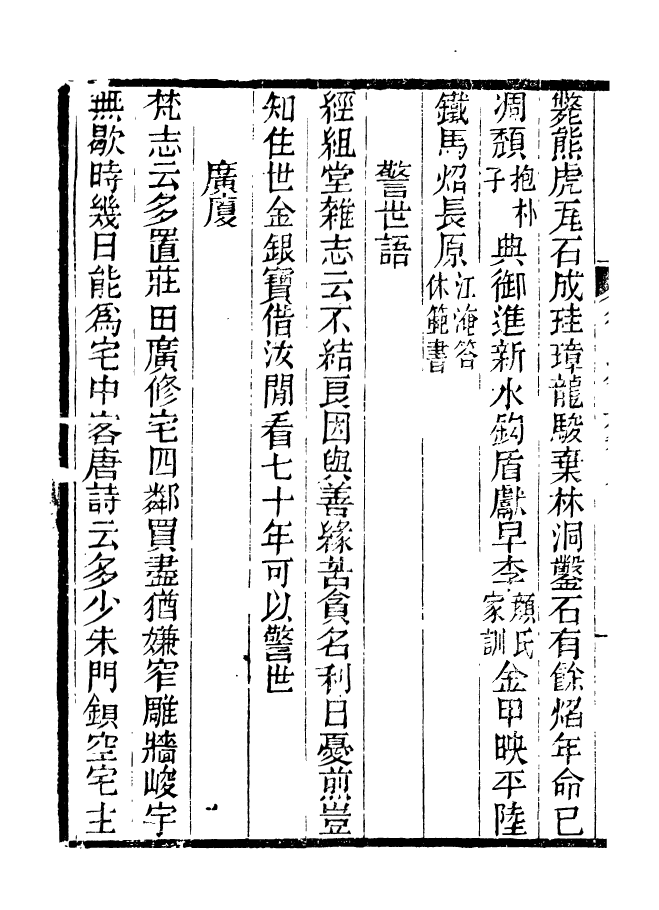 斃熊虎瓦石成珪璋龍駿棄林洞鑿石有餘焰年命已
凋頹抱朴子典御進新水鈎盾獻早李顏氏家訓金甲映平陸
鐵馬炤長原江淹答休範書
警世語
經組堂雜志云不結良因與善緣苦貪名利日憂煎豈
知住世金銀寶借汝閒看七十年可以警世
廣廈
梵志云多置莊田廣修宅四鄰買盡猶嫌窄雕牆峻宇
無歇時幾日能爲宅中客唐詩云多少朱門鎖空宅主